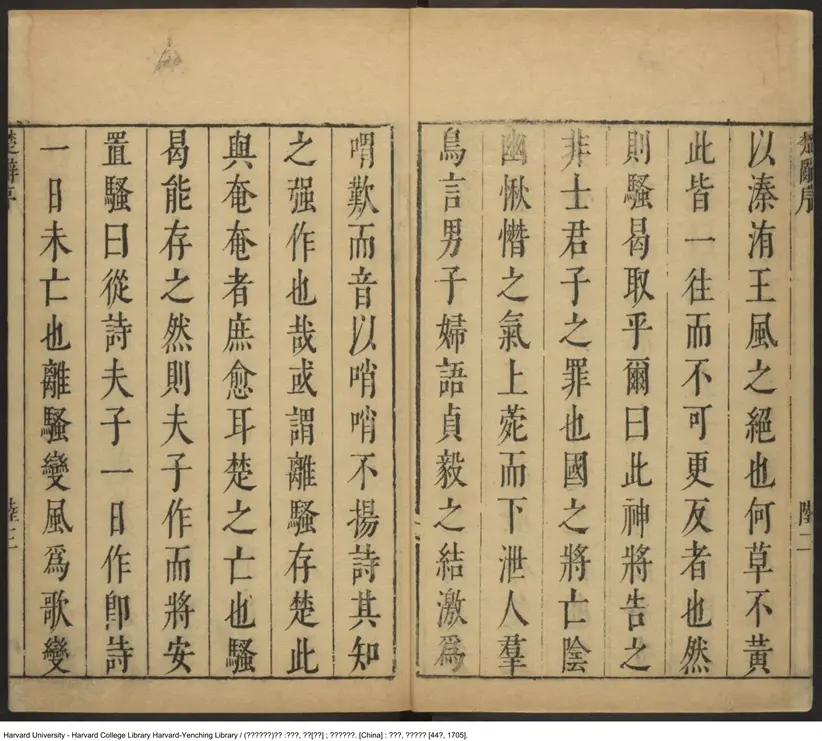 楚辭序
陸二
以溱洧王風之絕也何草不黃
此皆一往而不可更反者也然
則騷曷取乎爾曰此神將告之
非士君子之罪也國之將亡陰
幽愀憯之氣上薨而下泄人羣
鳥言男子婦語貞毅之結激爲
喟歎而音以哨哨不揚詩其知
之强作也哉或謂離騷存楚此
與奄奄者庶愈耳楚之亡也騷
曷能存之然則夫子作而將安
置騷曰從詩夫子一日作卽詩
一日未亡也離騷變風爲歌變
楚辭序
陸三
Harvard University - Harvard College Library Harvard-Yenching Library / (??????)?? :???, ??[??] ; ??????. [China] : ???, ????? [44?, 1705].